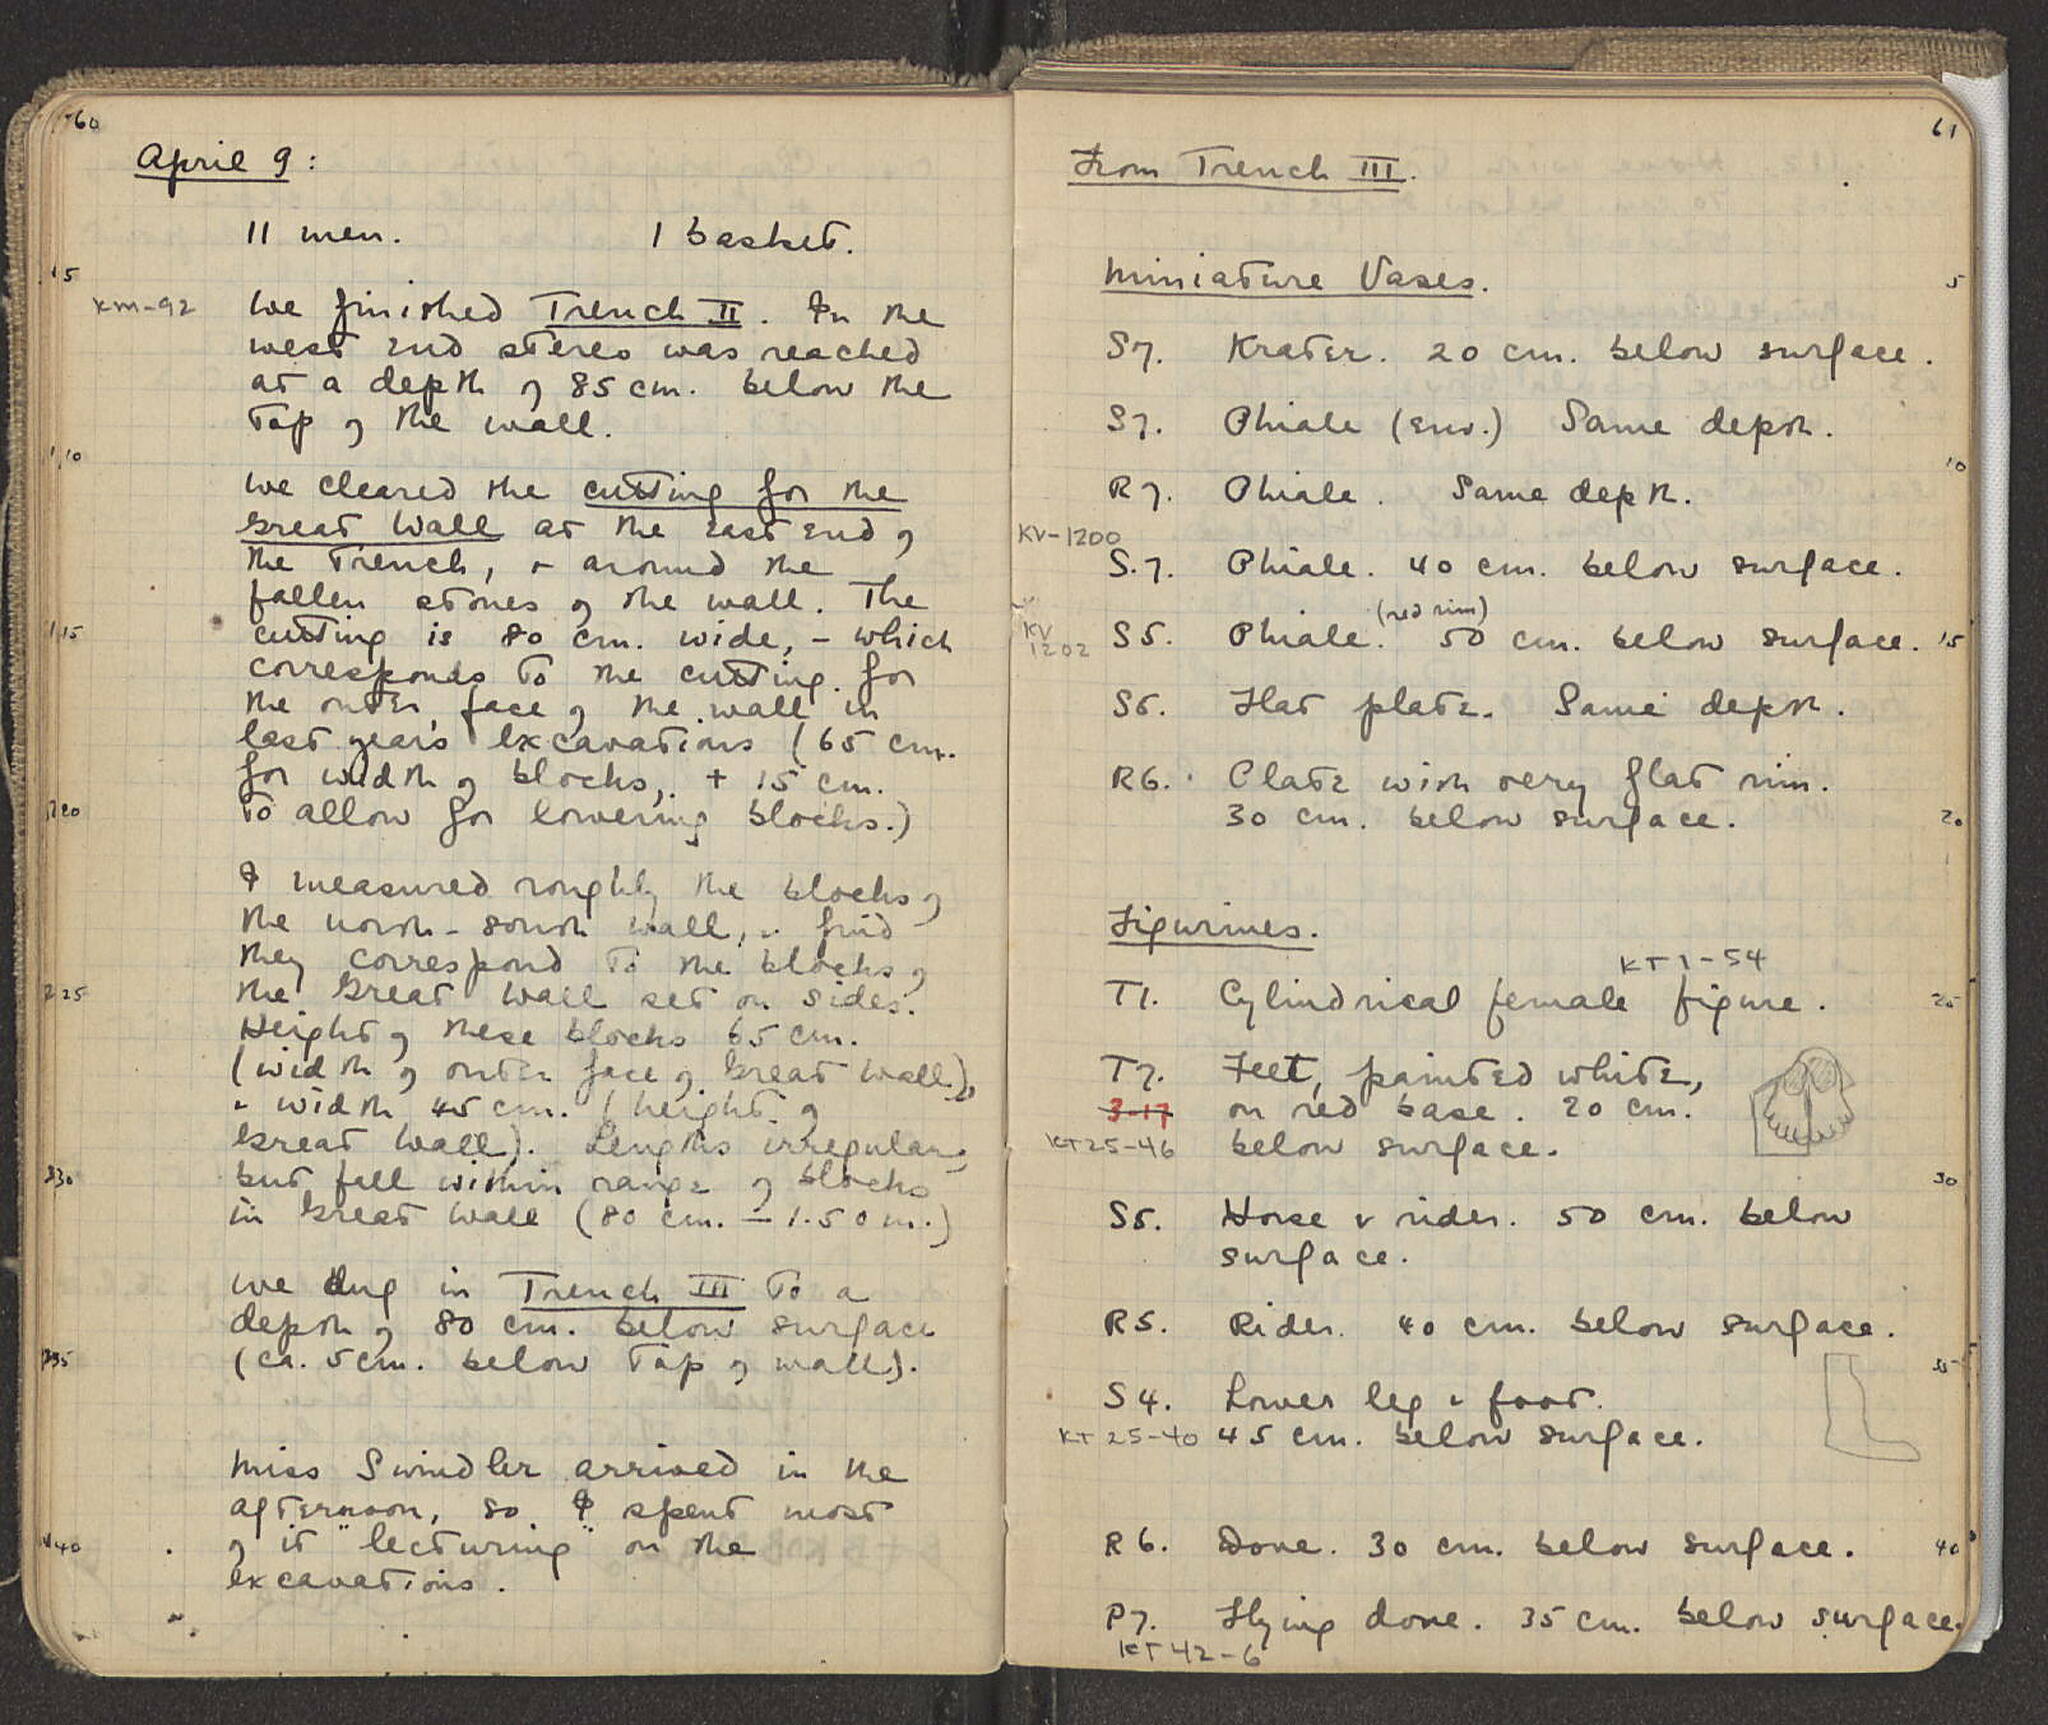 60
April 9:
11 men. 1 basket.
5
KM-92 We finished Trench II. In the
west end stereo was reached
at a depth of 85 cm. below the
top of the wall.
10
We cleared the cutting for the
Great Wall at the east end of
the trench, + around the
fallen stones of the wall. The
15 cutting is 80 cm. wide, - which
corresponds to the cutting for
the outer face of the wall in
last year's excavations (65 cm.
for width of blocks, + 15 cm.
20 to allow for lowering blocks.)
I measured roughly the blocks of
the north-south wall, + find
they correspond to the blocks of
25 the Great Wall set on sides.
Height of these blocks 65 cm.
(width of outer face of Great Wall),
+ width 45 cm. (height of
Great Wall). Lengths irregular,
30 but fall within range of blocks
in Great Wall (80 cm. - 1.50 m.)
We dug in Trench III to a
depth of 80 cm. below surface
35 (ca. 5 cm. below top of wall).
Miss Swindler arrived in the
afternoon, so I spent most
40 of it "lecturing" on the
excavations.
61
From Trench III.
Miniature Vases. 5
S7. Krater. 20 cm. below surface.
S7. Phiale (env.) Same depth.
10
R7. Phiale. Same depth.
KV-1200
S.7. Phiale. 40 cm. below surface.
(red rim)
KV 1202 S5. Phiale. 50 cm. below surface. 15
S5. Flat plate. Same depth.
R6. Plate with very flat rim.
30 cm. below surface. 20
Figurines.
KT 1-54
T1. Cylindrical female figure. 25
T7. Feet, painted white,
3-17 on red base. 20 cm.
KT25-46 below surface.
30
S5. Horse + rider. 50 cm. below
surface.
R5. Rider. 40 cm. below surface.
35
S4. Lower leg + foot.
KT 25-40 45 cm. below surface.
R6. Dove. 30 cm. below surface. 40
P7. Flying dove. 35 cm. below surface.
KT 42-6